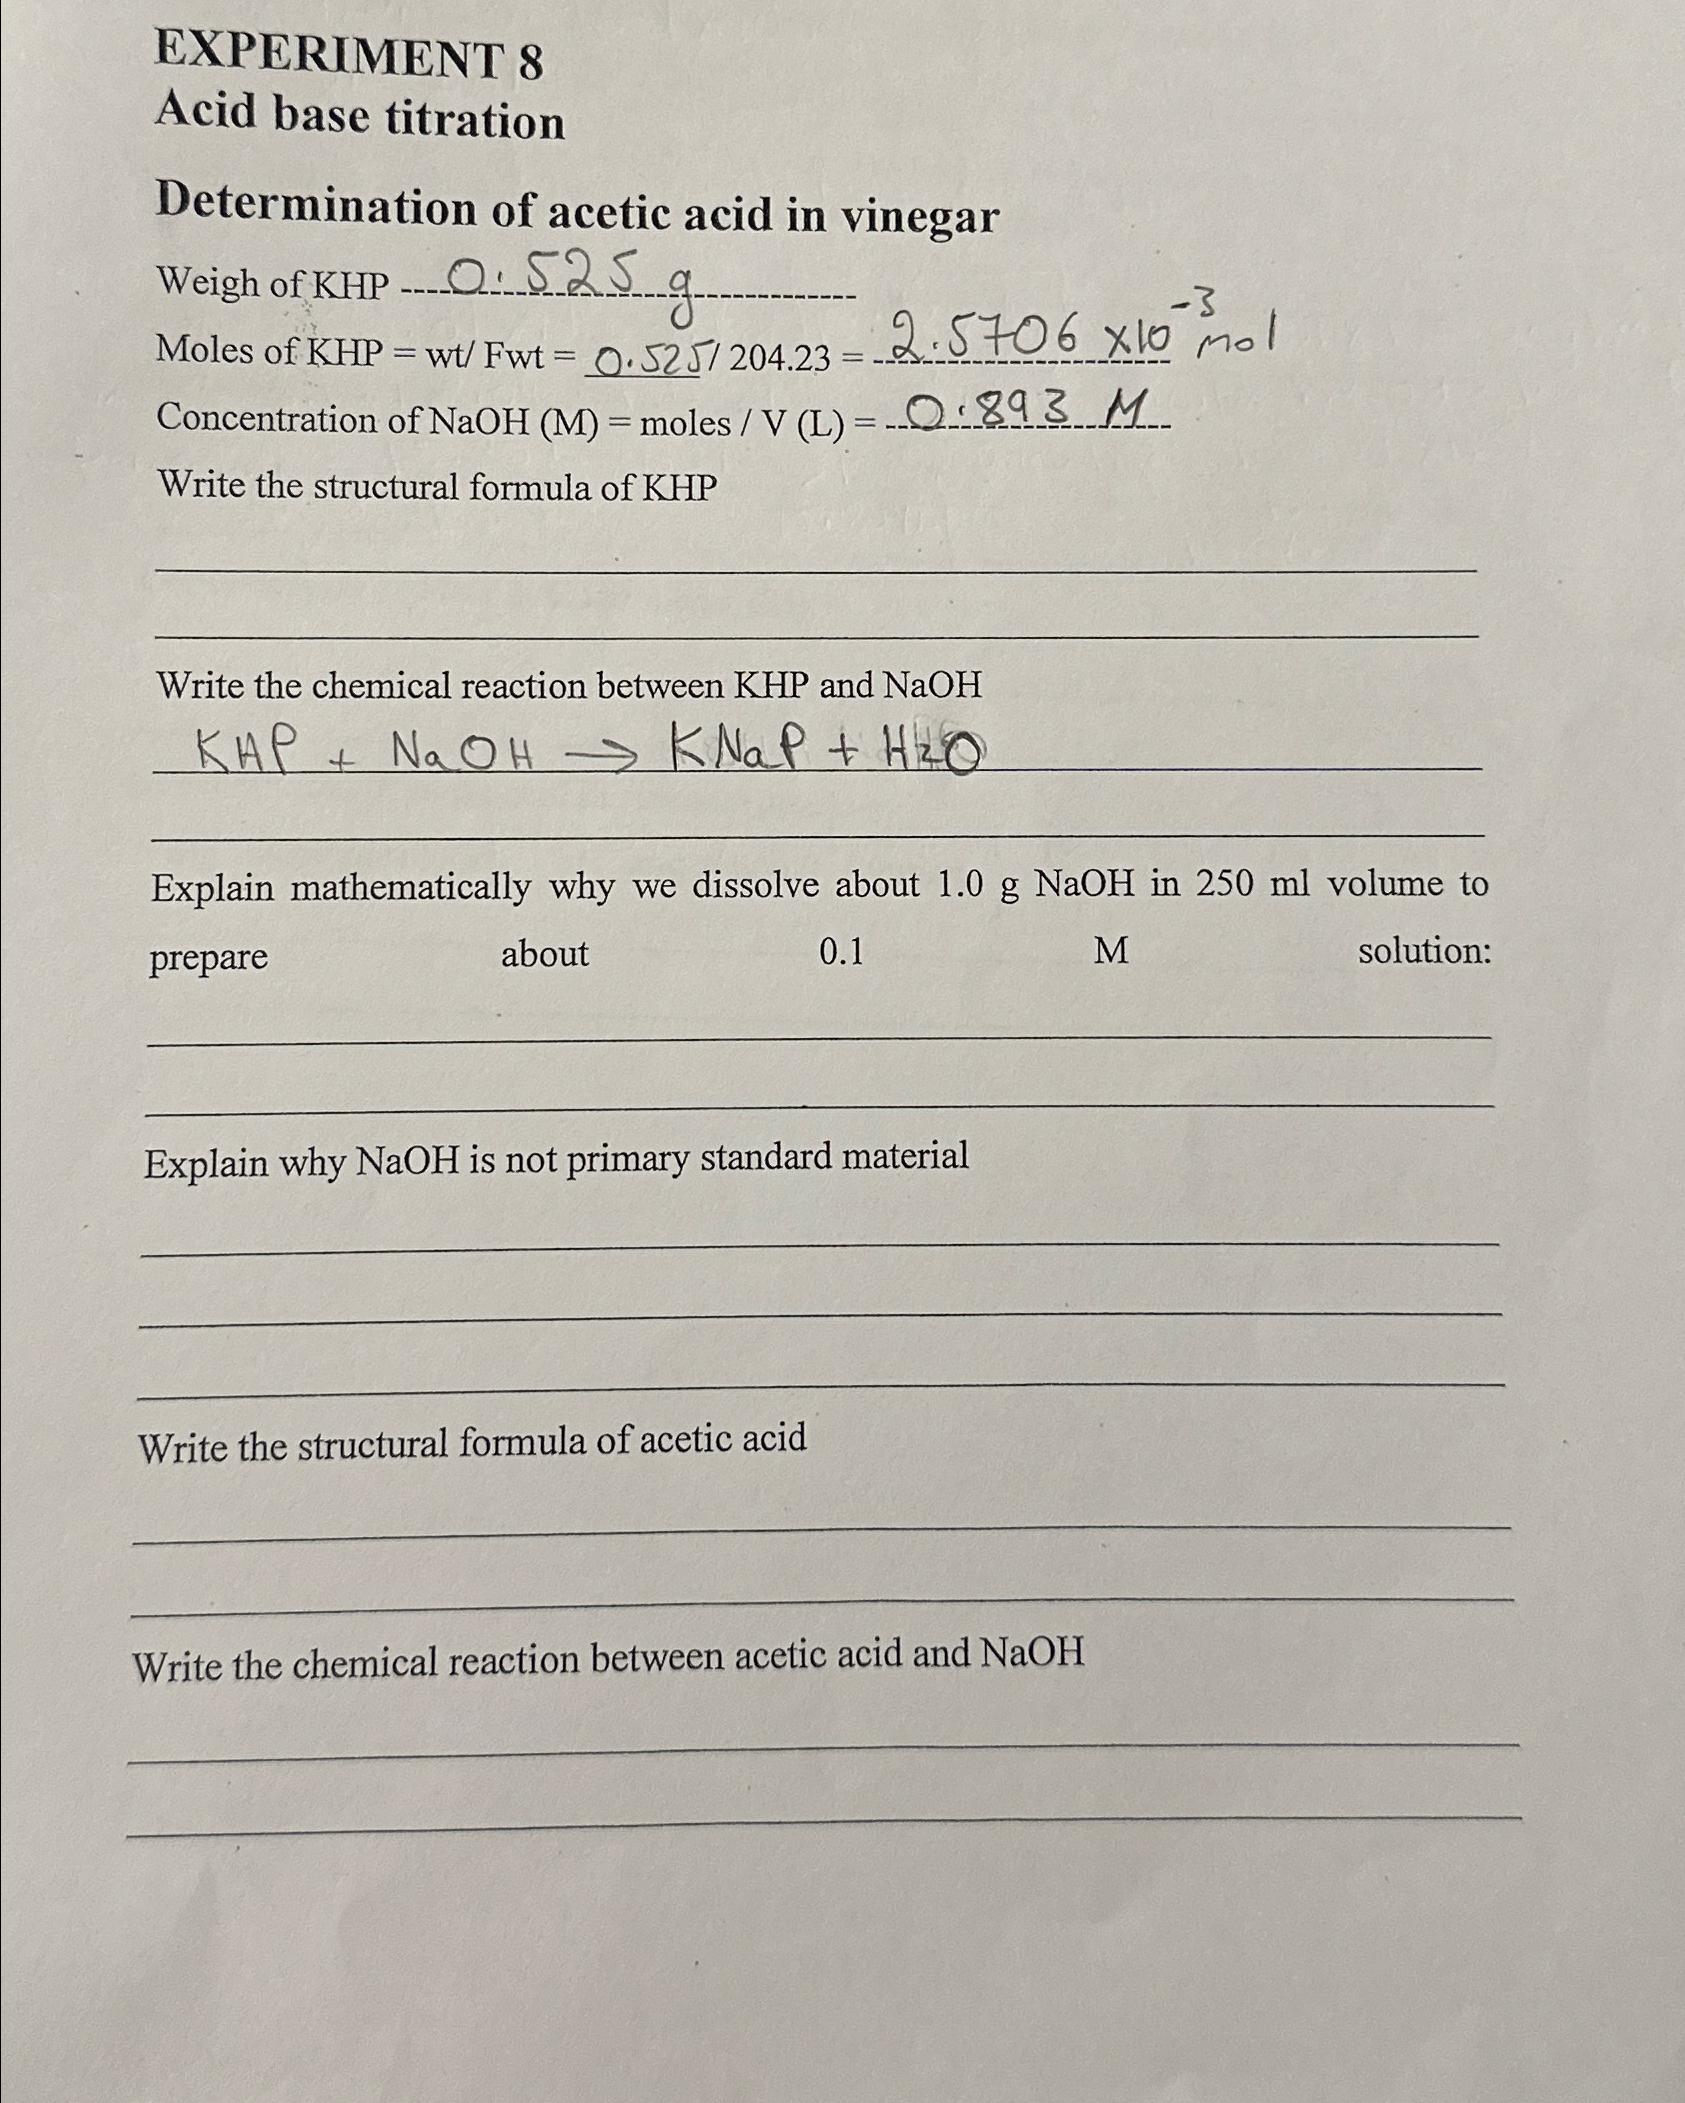 EXPERIMENT 8
Acid base titration
Determination of acetic acid in vinegar
Weigh of KHP ----0.525 g------------
Moles of KHP = wt/ Fwt = 0.525/ 204.23 = 2.5706 x10⁻³ mol
Concentration of NaOH (M) = moles / V (L) = 0.893 M
Write the structural formula of KHP
Write the chemical reaction between KHP and NaOH
KHP + NaOH → KNaP + H2O
Explain mathematically why we dissolve about 1.0 g NaOH in 250 ml volume to
prepare about 0.1 M solution:
Explain why NaOH is not primary standard material
Write the structural formula of acetic acid
Write the chemical reaction between acetic acid and NaOH